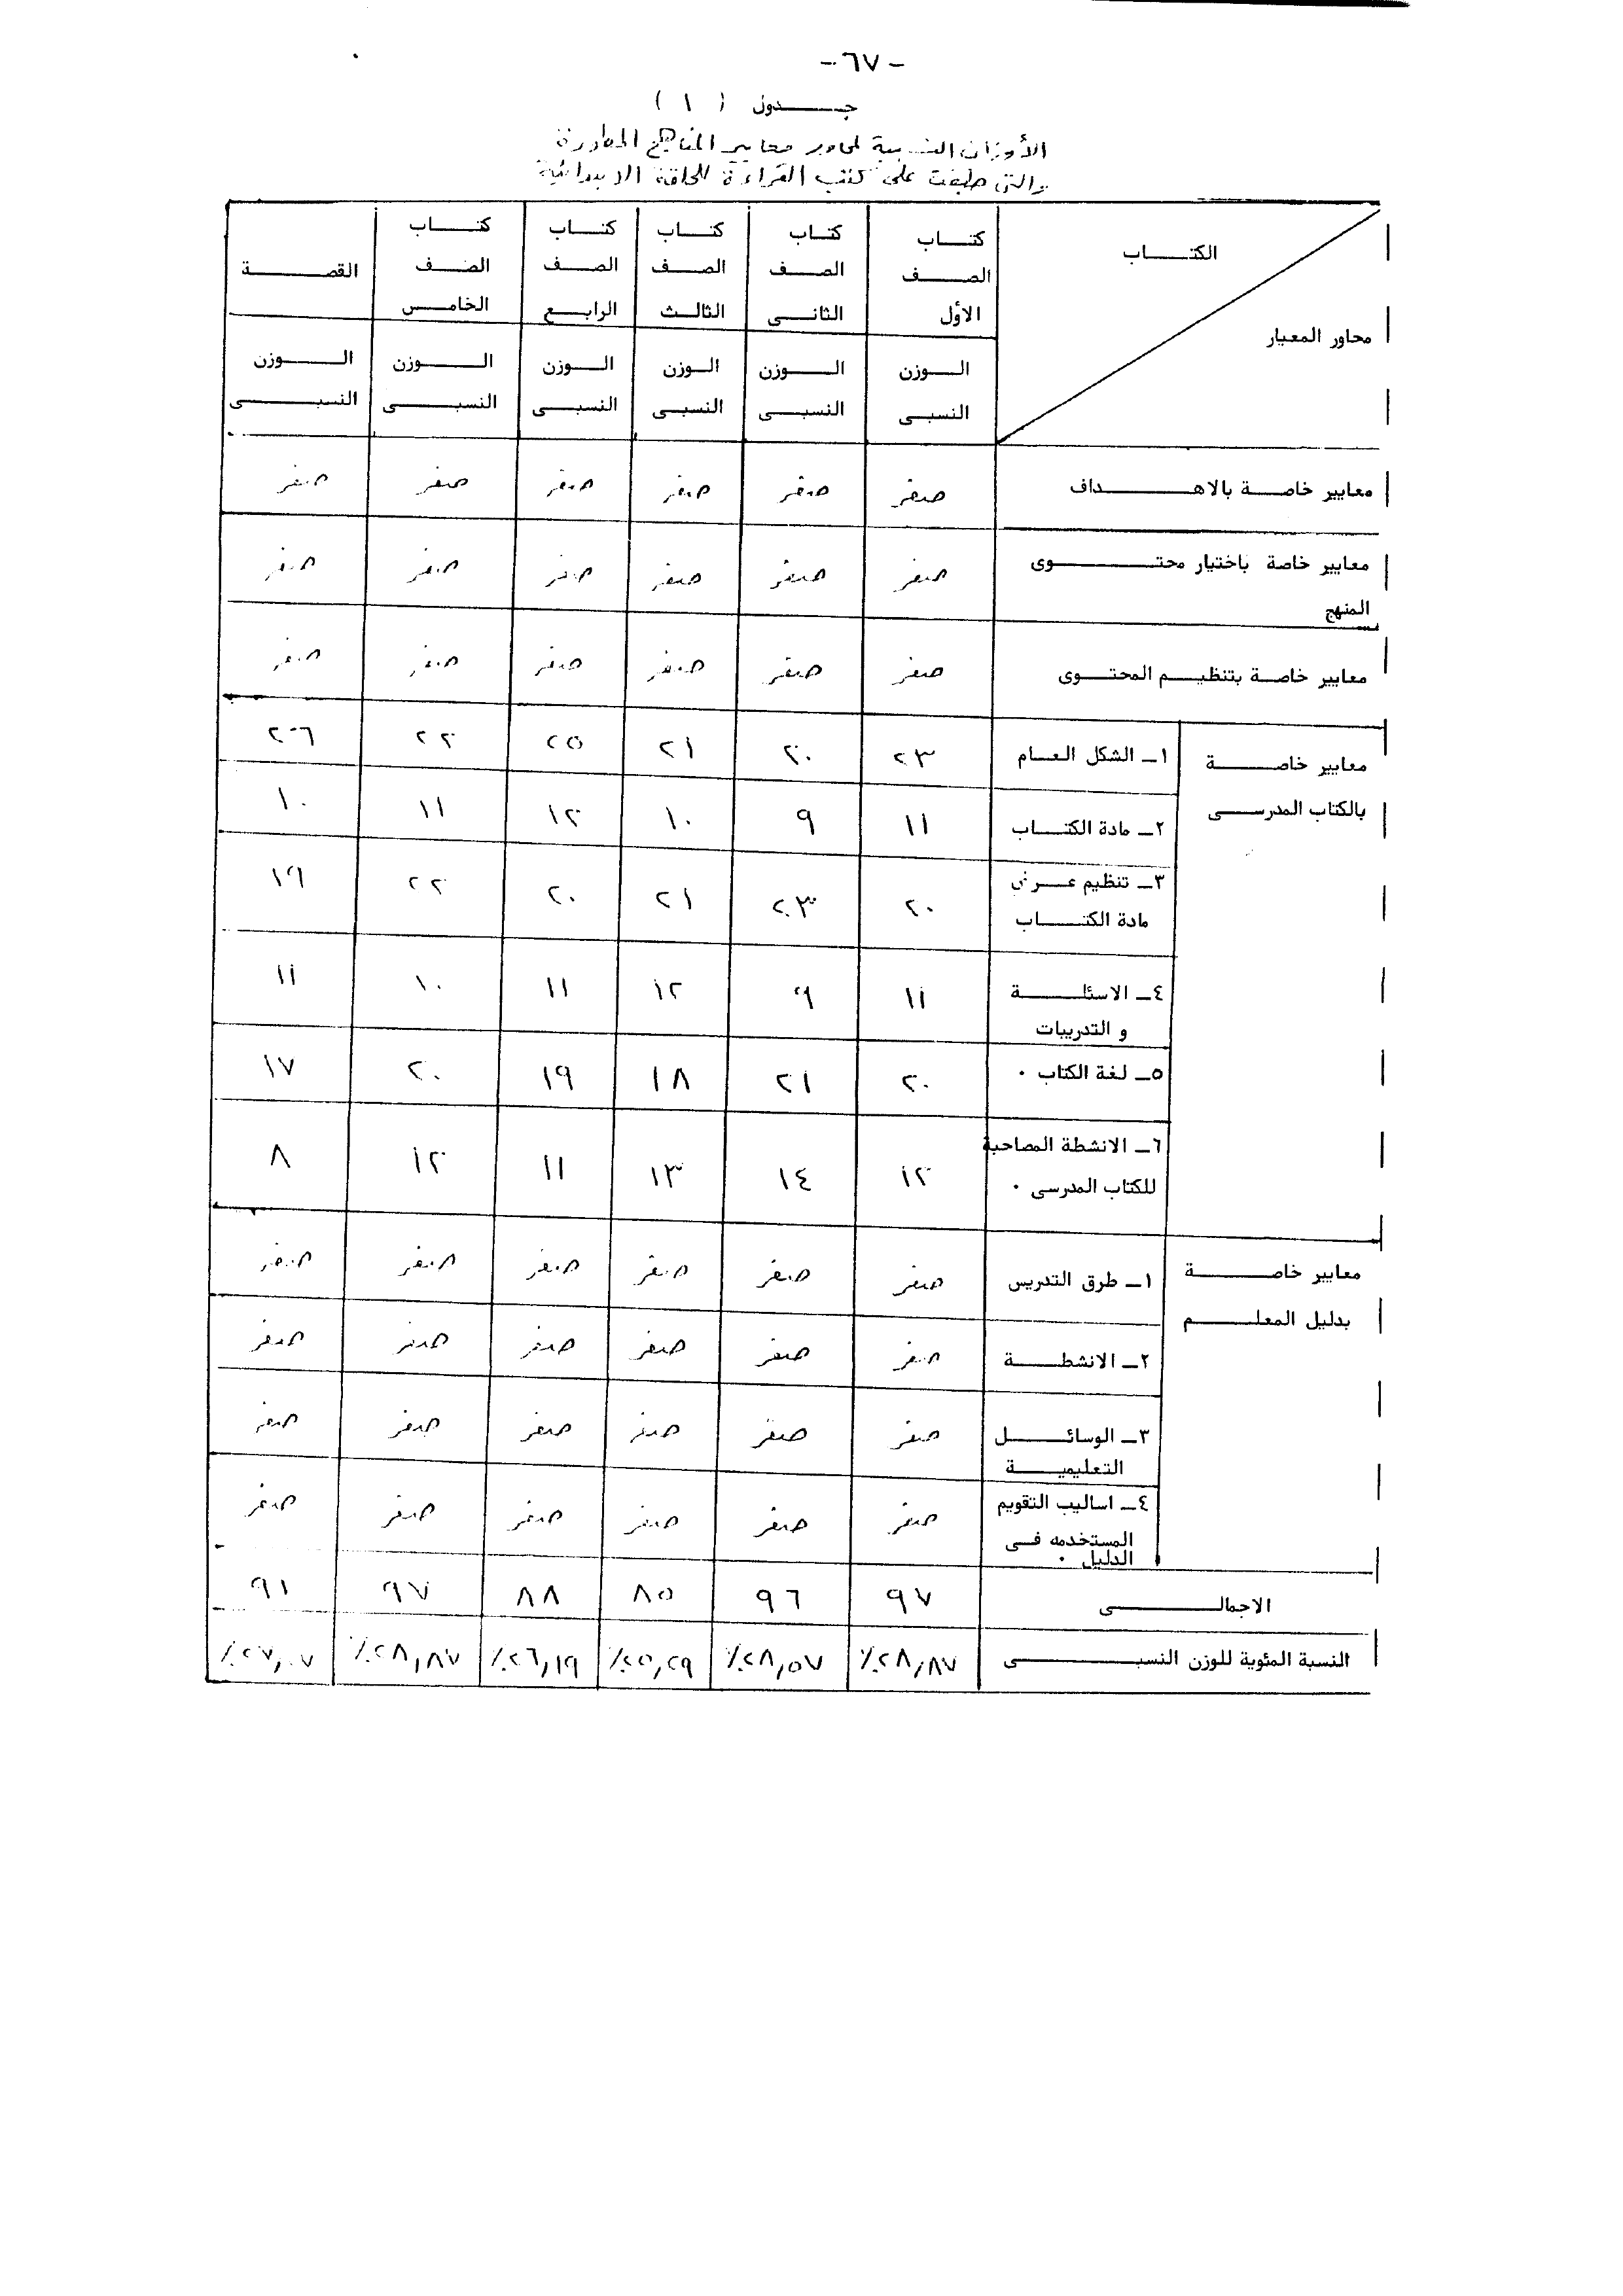 - ٦٧ -
جـــدول ( ١ )
الأوزان النسبية لمحاور معايير المناهج المطورة
والتى طبقت على كتب القراءة للحلقة الابتدائية
الكتـــاب
محاور المعيار
كتـــاب الصـــف الأول	كتـــاب الصـــف الثانـى	كتـــاب الصـــف الثالـث	كتـــاب الصـــف الرابـع	كتـــاب الصـــف الخامـس	القصـــة
الـــوزن النسبـى	الـــوزن النسبـى	الـــوزن النسبـى	الـــوزن النسبـى	الـــوزن النسبـى	الـــوزن النسبـى
معايير خاصـة بالاهـــداف	صفر	صفر	صفر	صفر	صفر	صفر
معايير خاصة باختيار محتـــوى المنهج	صفر	صفر	صفر	صفر	صفر	صفر
معايير خاصـة بتنظيـم المحتـوى	صفر	صفر	صفر	صفر	صفر	صفر
معايير خاصـــة بالكتاب المدرســى
١ـ الشكل العـام	٢٣	٢٠	٢١	٢٥	٢٢
٢ـ مادة الكتـــاب	١١	٩	١٠	١٢	١١	١٠
٣ـ تنظيم عـرض مادة الكتـــاب	٢٠	٢٣	٢١	٢٠	٢٢	١٩
٤ـ الاسئلـــة و التدريبات	١١	٩	١٢	١١	١٠	١١
٥ـ لغة الكتاب ٠	٢٠	٢١	١٨	١٩	٢٠	١٧
٦ـ الانشطة المصاحبة للكتاب المدرسى ٠	١٢	١٤	١٣	١١	١٢	٨
معايير خاصـــة بدليل المعلـــم
١ـ طرق التدريس	صفر	صفر	صفر	صفر	صفر	صفر
٢ـ الانشطـــة	صفر	صفر	صفر	صفر	صفر	صفر
٣ـ الوسائـــل التعليميـــة	صفر	صفر	صفر	صفر	صفر	صفر
٤ـ اساليب التقويم المستخدمه فـى الدليل ٠	صفر	صفر	صفر	صفر	صفر	صفر
الاجمالـــى	٩٧	٩٦	٨٥	٨٨	٩٧	٩١
النسبة المئوية للوزن النسبـــى	٢٨,٨٧٪	٢٨,٥٧٪	٢٥,٢٩٪	٢٦,١٩٪	٢٨,٨٧٪	٢٧,٠٧٪